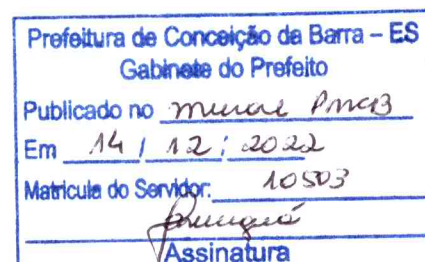 Prefeitura de Conceição da Barra – ES
Gabinete do Prefeito
Publicado no mural PMCB
Em 14 / 12 / 2022
Matricula do Servidor: 10503
Assinatura